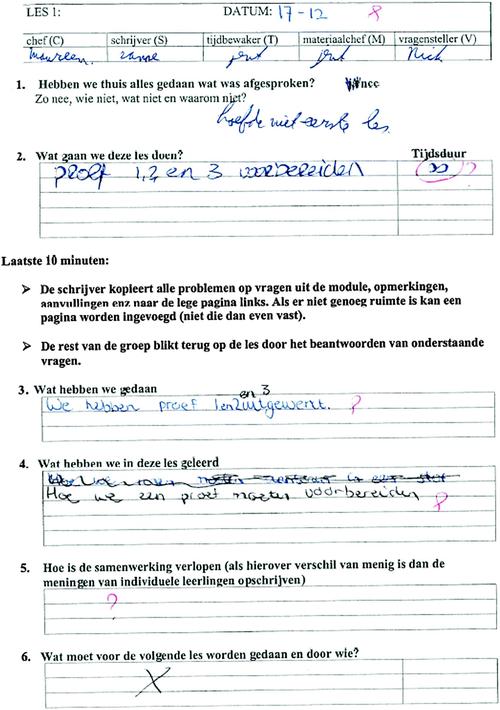 LES 1: DATUM: 17-12 ?
chef (C) schrijver (S) tijdbewaker (T) materiaalchef (M) vragensteller (V)
Maureen. sanne Nick
1. Hebben we thuis alles gedaan wat was afgesproken? nee
Zo nee, wie niet, wat niet en waarom niet?
hoefde niet eerste les
2. Wat gaan we deze les doen? Tijdsduur
proef 1,2 en 3 voorbereiden ∞ ?
Laatste 10 minuten:
➤ De schrijver kopieert alle problemen op vragen uit de module, opmerkingen,
aanvullingen enz naar de lege pagina links. Als er niet genoeg ruimte is kan een
pagina worden ingevoegd (niet die dan even vast).
➤ De rest van de groep blikt terug op de les door het beantwoorden van onderstaande
vragen.
3. Wat hebben we gedaan
en 3
We hebben proef 1en2uitgewerkt. ?
4. Wat hebben we in deze les geleerd
Hoe we een proef moeten voorbereiden ?
5. Hoe is de samenwerking verlopen (als hierover verschil van menig is dan de
meningen van individuele leerlingen opschrijven)
?
6. Wat moet voor de volgende les worden gedaan en door wie?
X